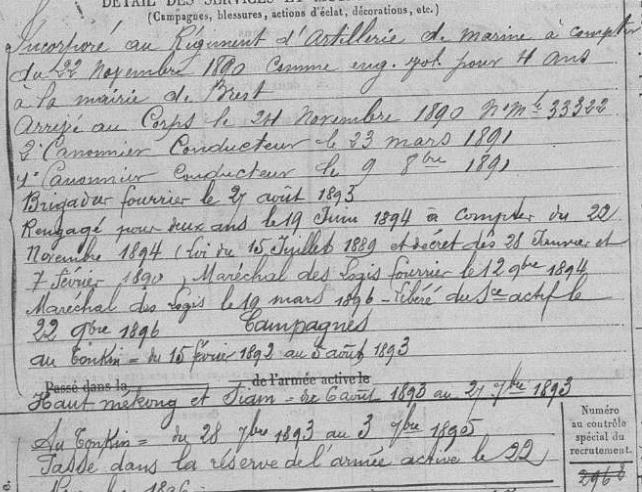 DÉTAIL DES SERVICES ET
(Campagnes, blessures, actions d'éclat, décorations, etc.)
Incorporé au Régiment d'Artillerie de marine à compter
du 22 Novembre 1890 comme eng. vol. pour 4 ans
à la mairie de Brest
Arrivé au Corps le 24 Novembre 1890 N° Mle 33322
2e Canonnier Conducteur le 23 mars 1891
1er Canonnier Conducteur le 9 8bre 1891
Brigadier fourrier le 27 août 1893
Rengagé pour deux ans le 19 Juin 1894 à compter du 22
Novembre 1894 (Loi du 15 Juillet 1889 et décret des 28 Janvier et
7 février 1890) Maréchal des Logis fourrier le 12 9bre 1894
Maréchal des Logis le 19 mars 1896 - Libéré du Sce actif le
22 9bre 1896 Campagnes
au Tonkin = du 15 février 1892 au 5 août 1893
Passé dans la de l'armée active le
Haut mékong et Siam = de 6 août 1893 au 27 7bre 1893
Au Tonkin = du 28 7bre 1893 au 3 7bre 1895
Passé dans la réserve de l'armée active le 22
1896
Numéro
au contrôle
spécial du
recrutement.